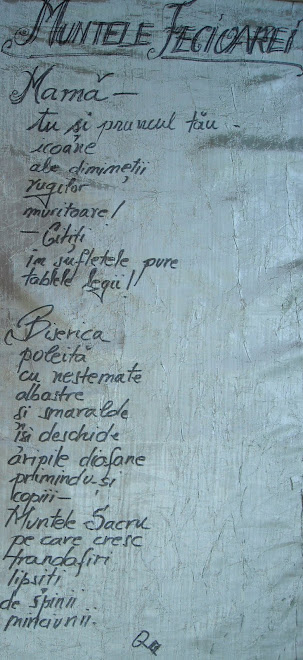 MUNTELE FECIOAREI
Mamă –
tu și pruncul tău –
icoane
ale dimineții
rugilor
muritoare!
– Citiți
în sufletele pure
tablele legii!
Biserica
poleită
cu nestemate
albastre
și smaralde
își deschide
aripile diafane
primindu-și
copiii –
Muntele Sacru
pe care cresc
trandafiri
lipsiți
de spinii
minciunii.